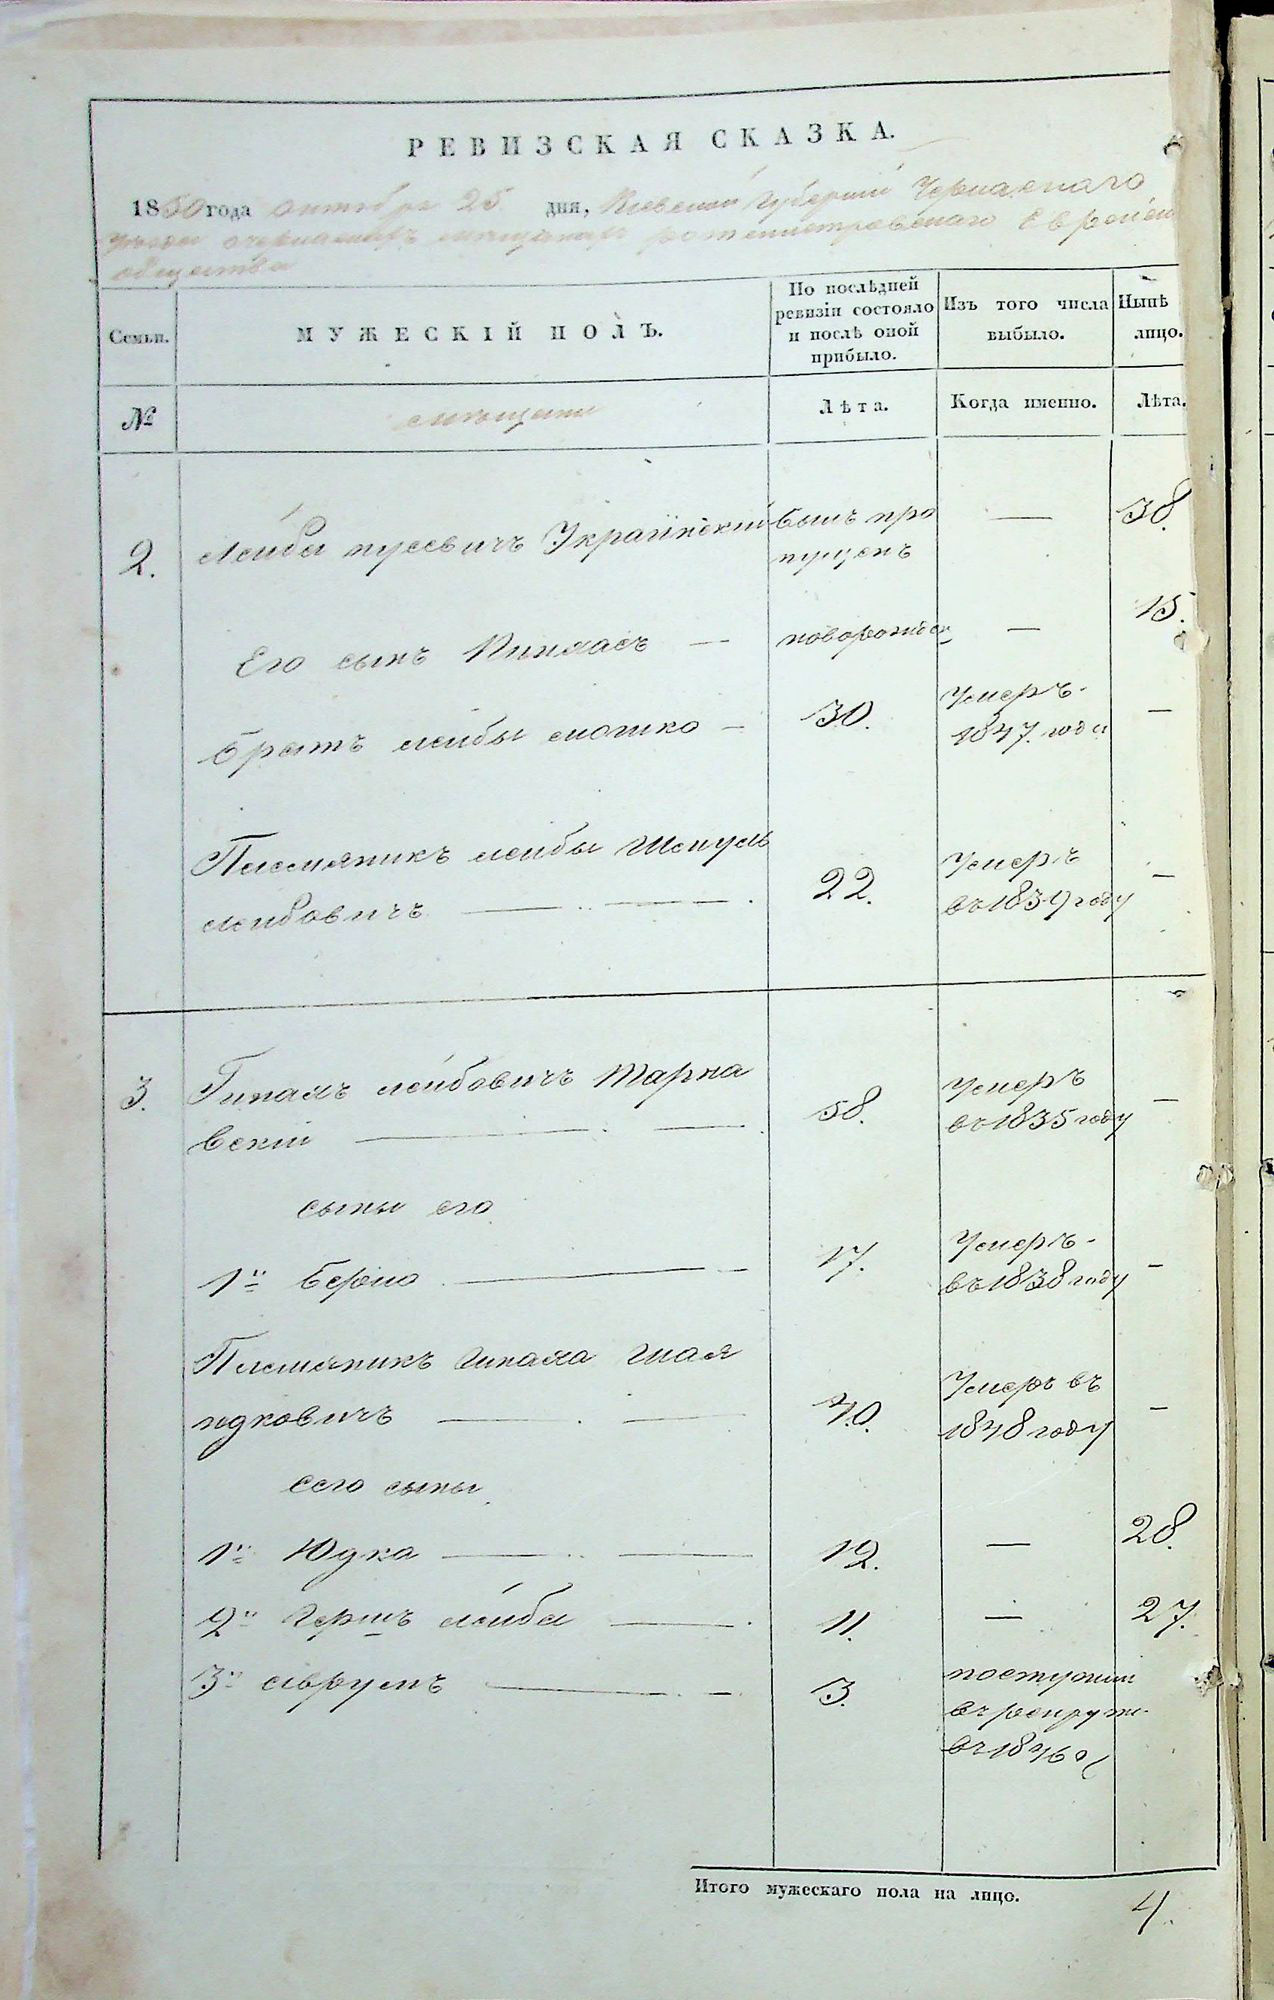 РЕВИЗСКАЯ СКАЗКА.
1850 года октября 25 дня, Киевской Губернии Черкаскаго
уезда о черкаскихъ мещанахъ ротмистровскаго Еврейск
общества
Семьи.
МУЖЕСКІЙ ПОЛЪ.
По послѣдней
ревизіи состояло
и послѣ оной
прибыло.
Изъ того числа
выбыло.
Нынѣ
лицо.
№
мещане
Лѣта.
Когда именно.
Лѣта.
2. Лейба Мусевичъ Украинский былъ про — 38.
пущенъ
Его сынъ Пинхасъ — новорожден — 15.
Братъ лейбы мошко — 30. Умеръ —
1847. года
Племяникъ лейбы Шмуль 22. Умеръ —
лейбовичъ — в 1839 году
3. лейбовичъ Тарна 58. Умеръ —
вский — в 1835 году
сыны его
1й Берко — 17. Умеръ —
въ 1838 году
Племяникъ Шая 40. Умеръ въ —
юдковичъ — 1848 году
сего сыны
1й Юдка — 12. — 28.
2й Гершъ лейба — 11. — 27.
3й аврумъ — 3. поступил
в рекруты
в 1846 г
Итого мужескаго пола на лицо. 4.